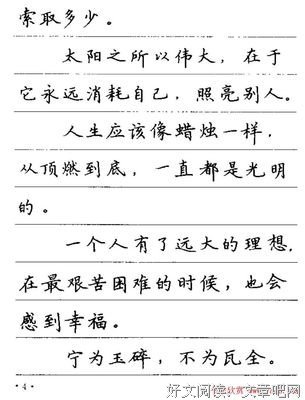 索取多少。
太阳之所以伟大，在于
它永远消耗自己，照亮别人。
人生应该像蜡烛一样，
从顶燃到底，一直都是光明
的。
一个人有了远大的理想，
在最艰苦困难的时候，也会
感到幸福。
宁为玉碎，不为瓦全。
·4·
好文阅读，文章吧网